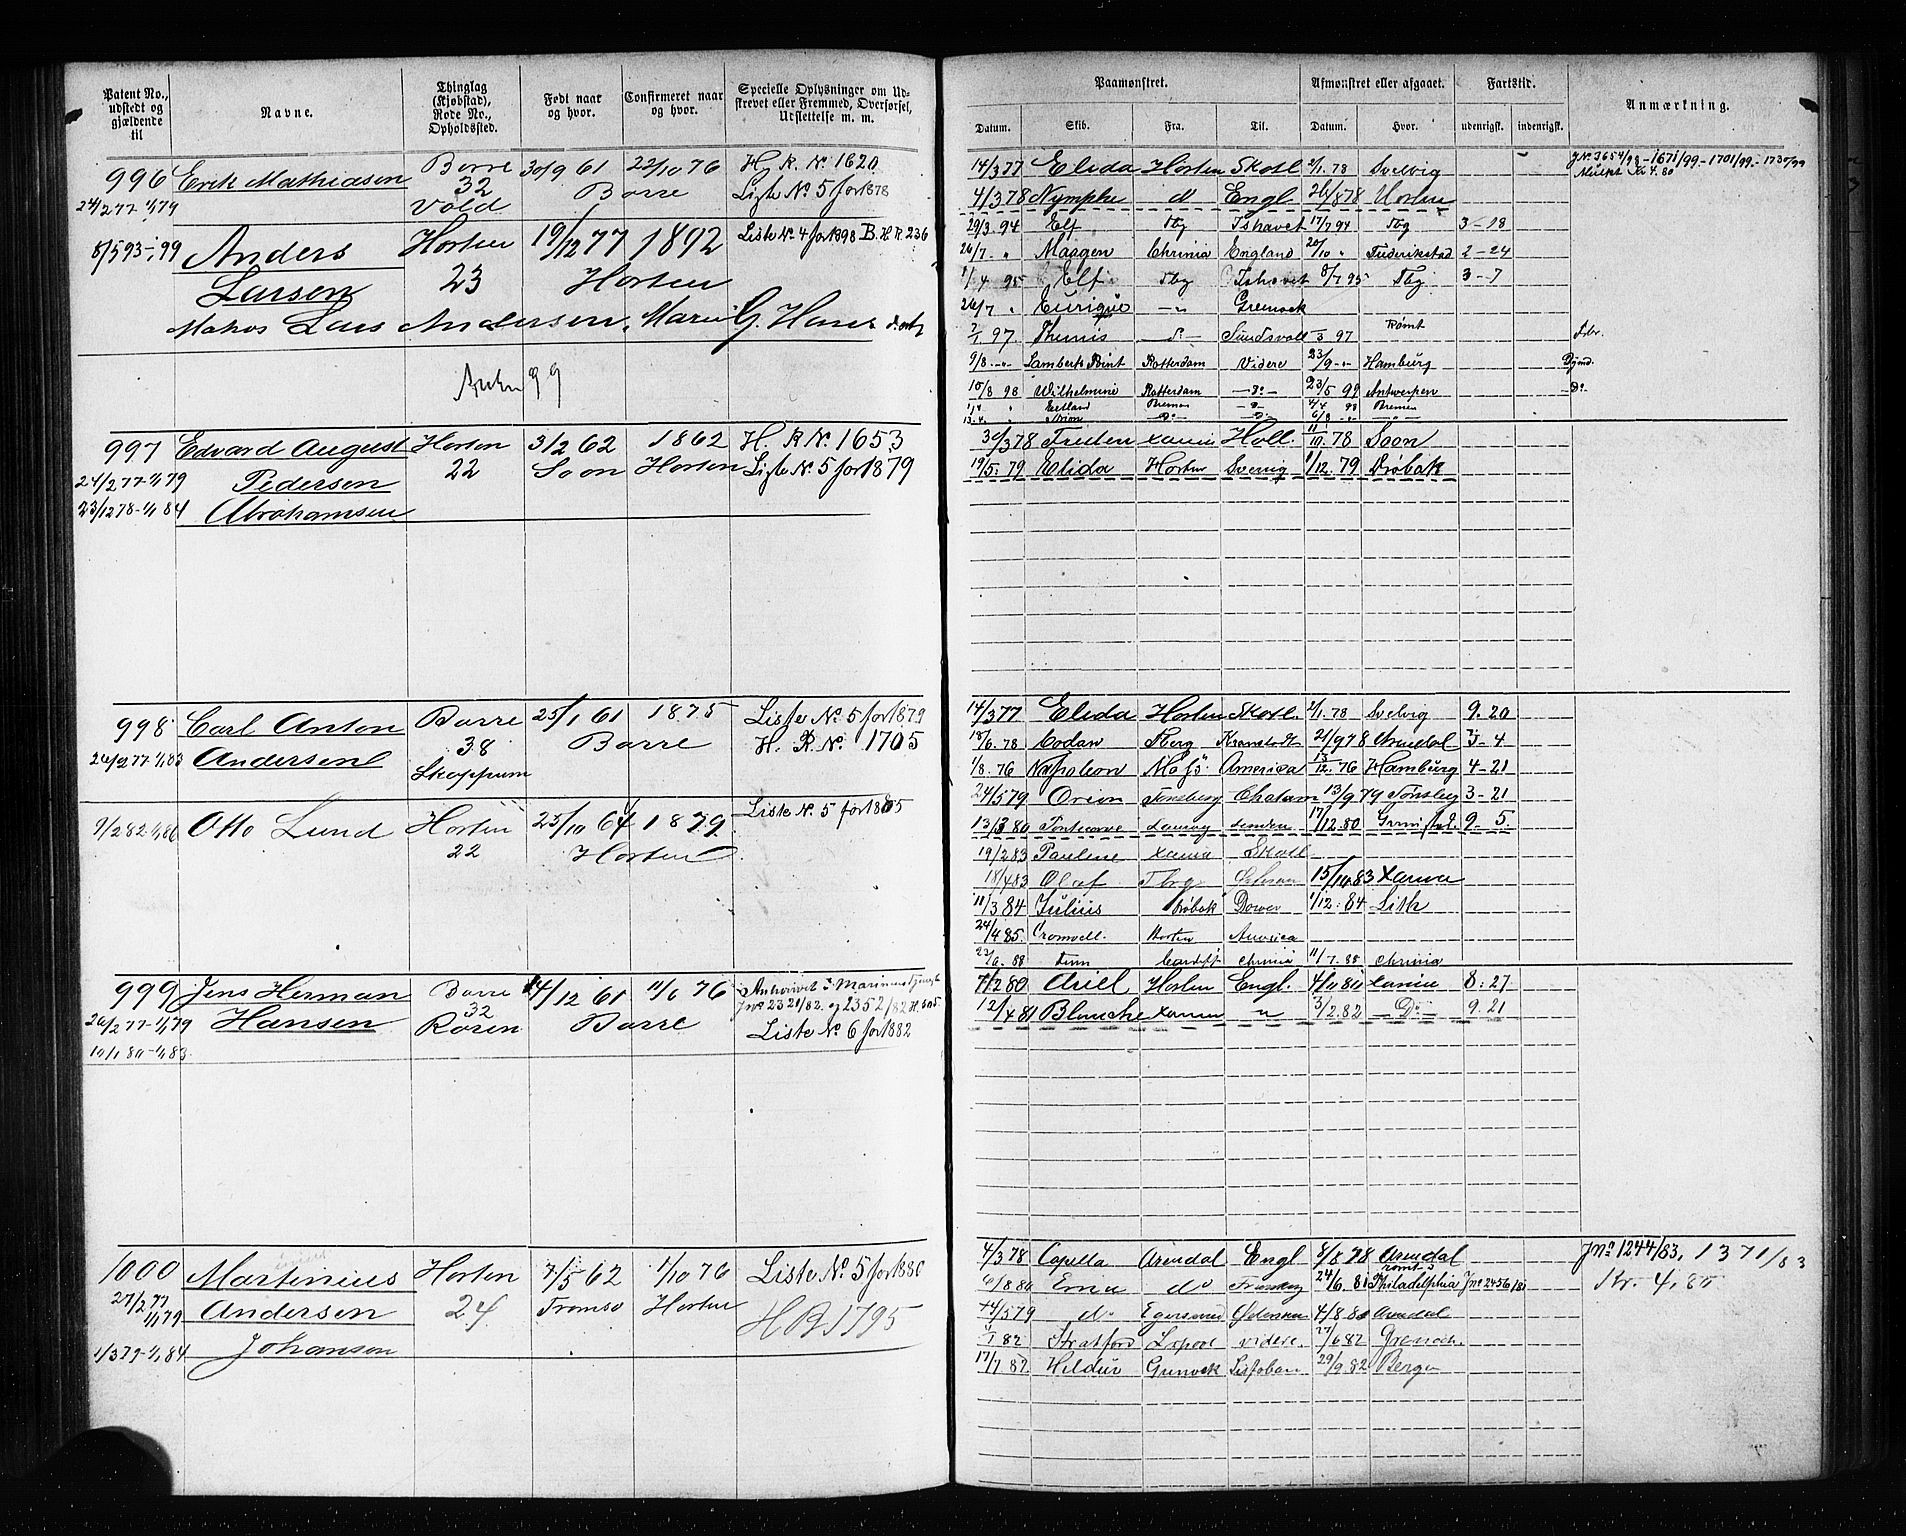 Patent No., udstedt og gjældende til
Navne.
Thinglag (Kjøbstad), Rode No., Opholdssted.
Født naar og hvor.
Confirmeret naar og hvor.
Specielle Oplysninger om Udskrevet eller Fremmed, Overførsel, Udslettelse m. m.
Paamønstret.
Afmønstret eller afgaaet.
Fartstid.
Anmærkning.
Datum. Skib. Fra. Til. Datum. Hvor. udenrigsk. indenrigsk.
996 Erik Mathiasen Borre 30/9 61 22/10 76 H. R. N. 1620
24/2 77-1/1 79 32 Vold Borre Liste N. 5 for 1878
8/5 93-1/1 99 Anders Horten 19/12 77 1892 Liste N. 4 for 1898 B. H. R. 236
Larsen 23 Horten
Lars Andersen, Marie G. Hans
997 Edvard August Horten 3/2 62 1862 H. R. N. 1653
24/2 77-1/1 79 Pedersen 22 Soon Horten Liste N. 5 for 1879
23/12 78-1/1 84 Abrahamsen
998 Carl Anton Borre 25/1 61 1875 Liste No. 5 for 1879
26/2 77-1/1 83 Andersen 38 Borre H. R. No. 1705
Skoppum
9/2 82-1/1 86 Otto Lund Horten 25/10 64 1879 Liste N. 5 for 1885
22 Horten
999 Jens Herman Borre 14/12 61 76
26/2 77-1/1 79 Hansen 32 Røren Borre Liste No. 6 for 1882
10/1 80-1/1 83
1000 Martinius Horten 7/5 62 1/10 76 Liste No. 5 for 1880
27/2 77 1/1 79 Andersen 24 Tromsø Horten H R 1795
1/3 79-1/1 84 Johansen
14/3 77 Elida Horten Skotl 2/1. 78 Svelvig
4/3 78 Nymphe d Engl 26/8 78 Horten
29/3. 94 Elf Tbg Ishavet 17/7 94 Tbg 3-18
26/7 " Maagen Chrinia England 20/10 " Frederikstad 2-24
1/4 95 Elf Tbg Ishavet 8/7 95 Tbg 3-7
26/7 " Eurique -"- Grenock
2/1. 97. Themis do Sundsvall 97 Rømt
9/8 -"- Lamberts Point Rotterdam Videre 23/9 -"- Hamburg
10/8 98 Wilhelmine Rotterdam -Do- 23/5 99 Antwerpen Do
Bremen -Do- 4/4 98 Bremen
30/3 78 Freden Xania Holl. 11/10. 78 Soon
19/5. 79 Elida Horten Sverig 1/12. 79 Drøbak
14/3 77 Elida Horten Skotl. 2/1. 78 Svelvig 9. 20
18/6. 78 Codan Tberg Kronstadt 21/9 78 Arendal 3-4
1/8. 76 Napoleon Mofs America 13/12. 76 Hamburg 4-21
24/5 79 Orion Tønsberg Chatam 13/9 79 Tønsbg 3-21
13/3 80 17/12. 80 9. 5.
19/2 83 Pauline Xania Skotl
18/4 83 Olaf Tbrg 15/10 83 Xania
11/3 84 Julius Drøbak Dover 1/12. 84 Lith
24/4 85. Cromvell. Horten America
22/6. 88 Cardiff Chrinia 11/7. 88 Chrinia
7/2 80 Ariel Horten Engl. Xania 8. 27
12/4 81 Blanche Xania " 3/2. 82 -Do- 9. 21
4/3 78 Capella Arendal Engl 8/8 78 Arendal Jno 1244/83, 1371/83
6/8 80 Erna do 24/6. 81 Philadelphia Jno 2456/81 Kr. 4,80
4/5 79 do Egersund 4/8. 80 Arendal
82 Stratford Lspool videre. 27/6 82 Grenock.
17/7 82 Hildur Grenock Lissabon 29/9. 82 Bergen